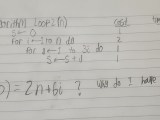 Algorithm Loop2(n) cost
s ← 0 1
for i ← 1 to n do 2
for k ← 1 to 3i do
s ← s + i 1
) = 2n+6i ? why do I have